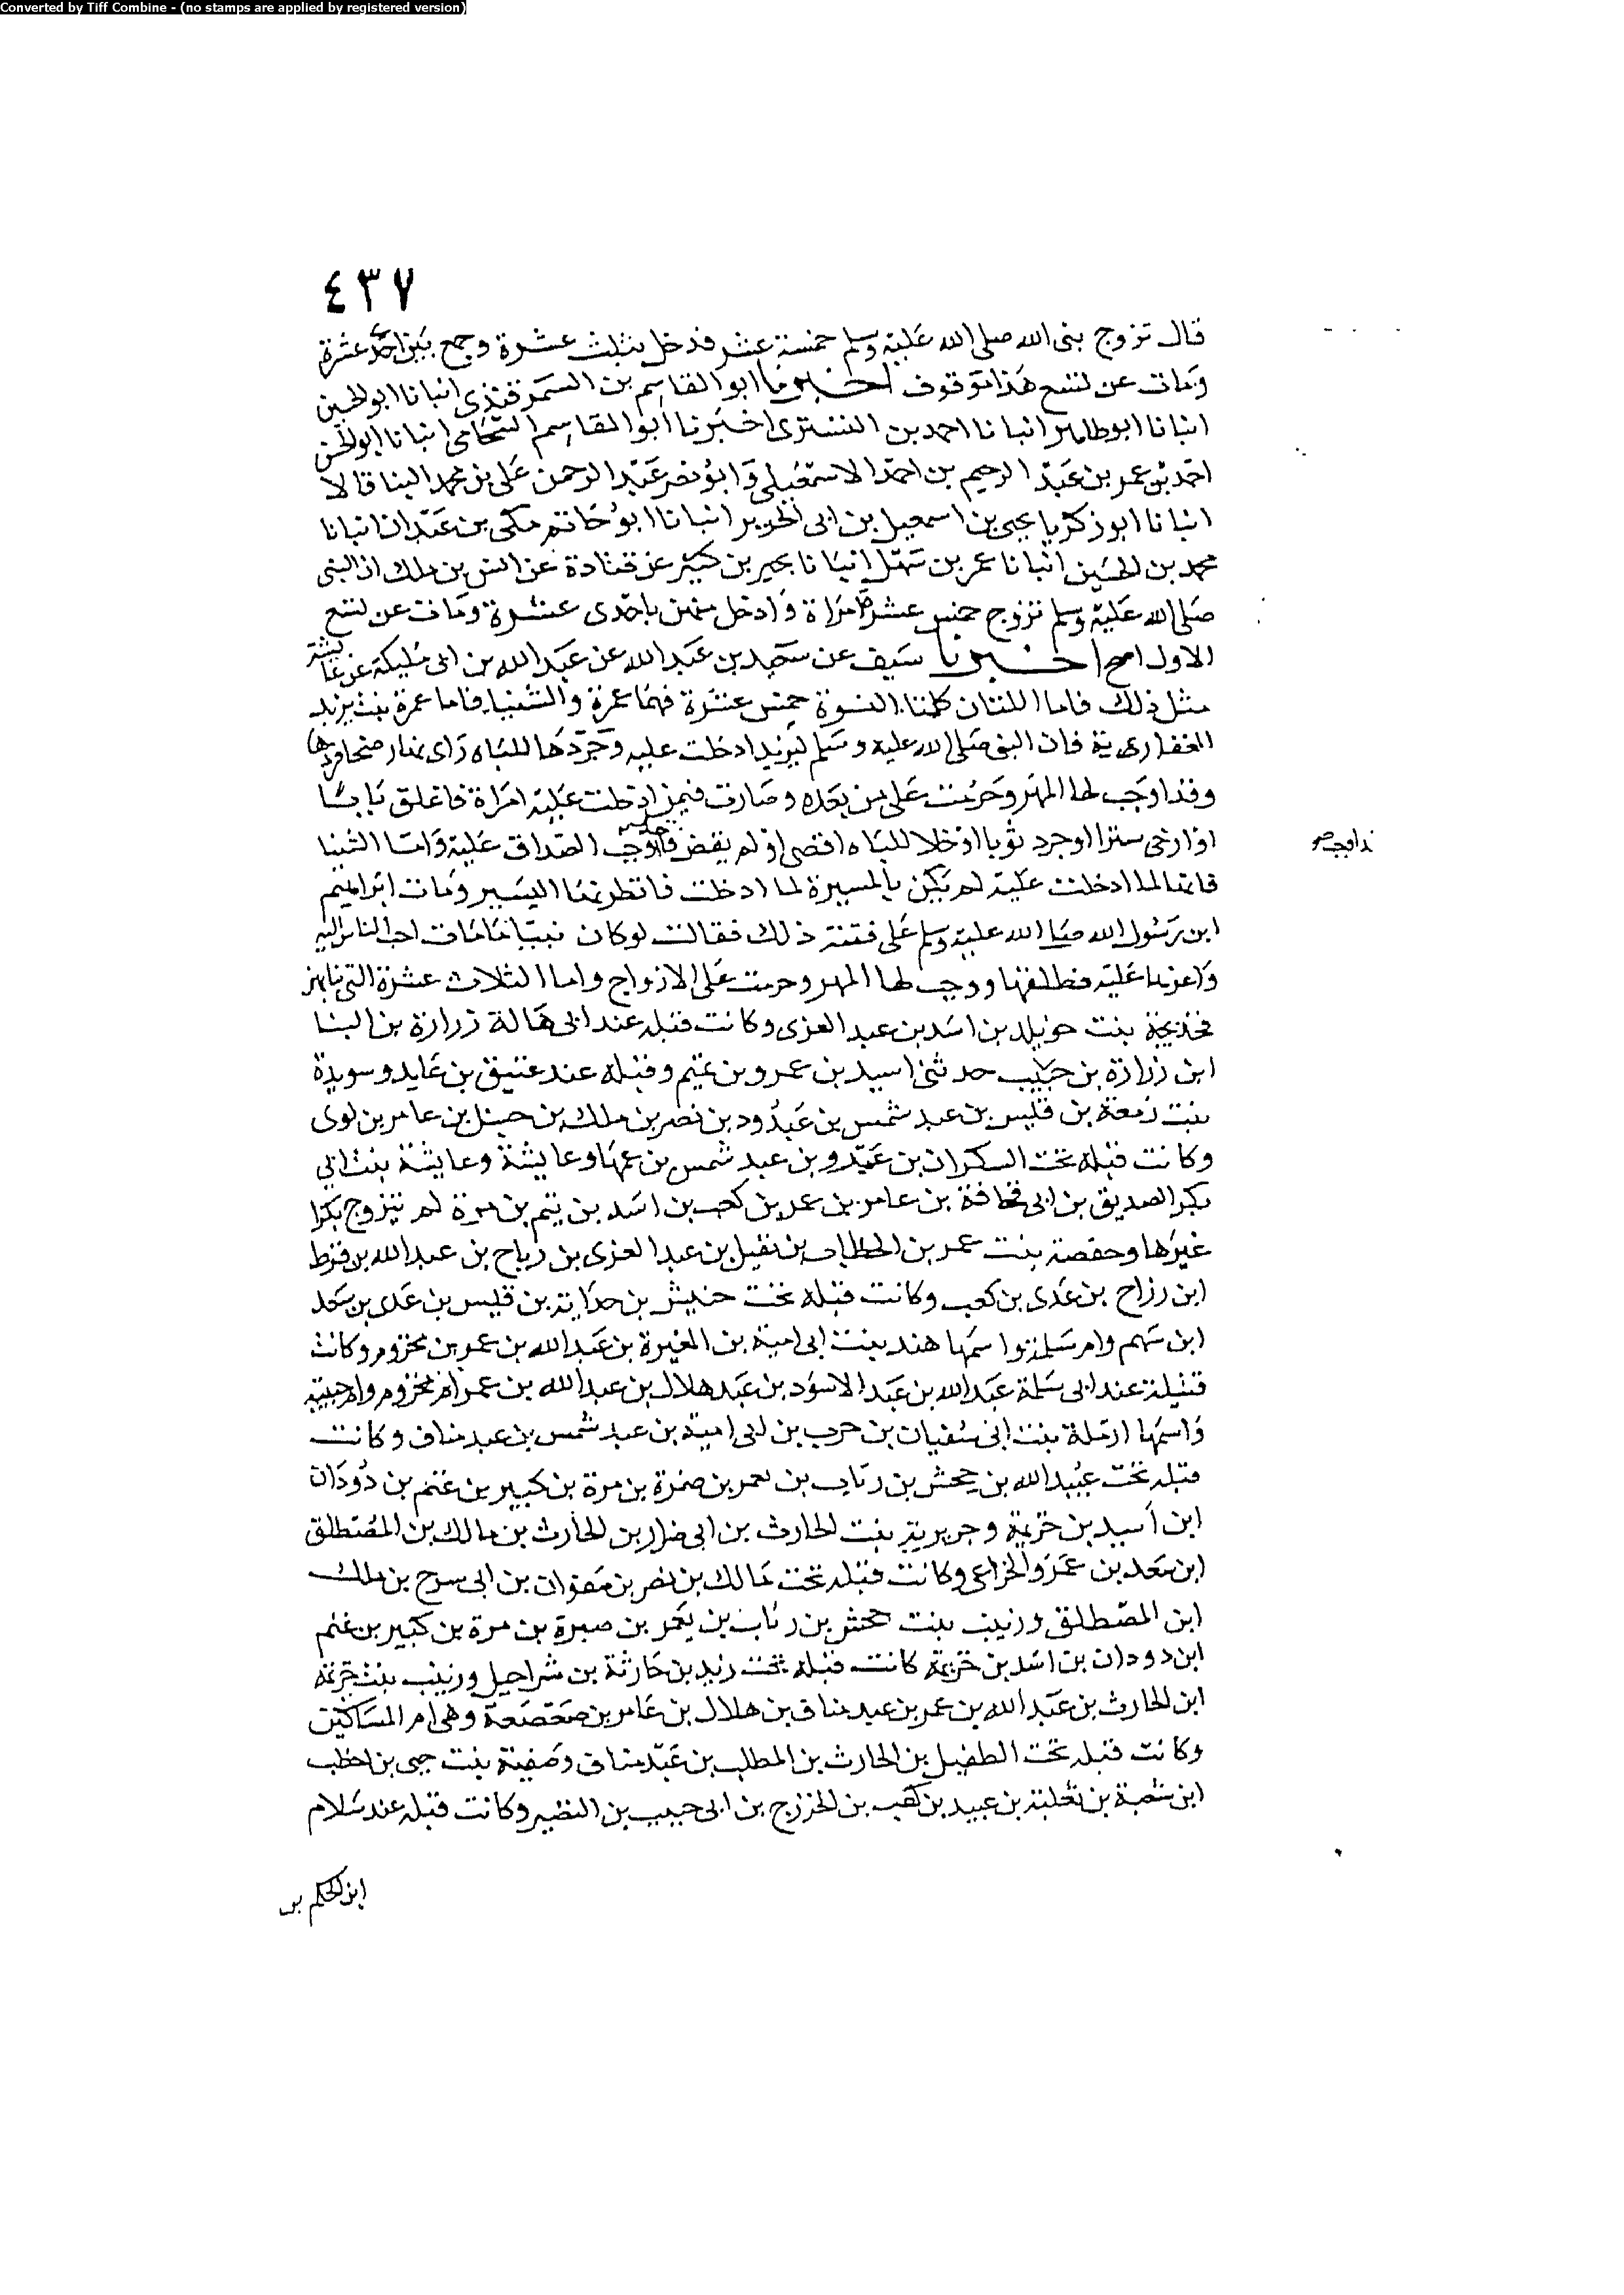 Converted by Tiff Combine - (no stamps are applied by registered version)
٤٣٧
قال تزوج نبى الله صلى الله عليه وسلم خمسة عشر فدخل بثلث عشرة وجمع بين احدى عشرة
ومات عن تسع هذا موقوف اخبرنا ابو القاسم بن السمرقندى انبانا ابو الحسين
انبانا ابو طاهر انبانا احمد بن التسترى اخبرنا ابو القاسم الشحامى انبانا ابو الحسن
احمد بن عمر بن عبد الرحيم بن احمد الاسمعيلى وابو نصر عبد الرحمن على بن محمد البنا قالا
انبانا ابو زكريا يحيى بن اسمعيل بن ابى الحربر انبانا ابو حاتم مكى بن عبدان انبانا
محمد بن الحسين انبانا عمر بن سهل انبانا بحير بن كثير عن قتادة عن انس بن ملك ان النبى
صلى الله عليه وسلم تزوج خمس عشرة امراة وادخل منهن باحدى عشرة ومات عن تسع
الاول اصح اخبرنا سيف عن سعيد بن عبد الله عن عبد الله بن ابى مليكة عن عايشة
مثل ذلك فاما اللتان كلمتا النسوة خمس عشرة فهما عمرة والشنبا فاما عمرة بنت يزيد
الغفارى ية فان النبى صلى الله عليه وسلم ليزيد ادخلت عليه وجردها للباه راى بها
وقد اوجب لها المهر وحرمت على من بعده وصارت فيمن ادخلت عليه امراة فاغلق بابا
او ارخى سترا او جرد ثوبا او خلا للباه افضى او لم يفض فاوجب الصداق عليه واما الشنبا
فانها لما ادخلت عليه لم يكن باليسيرة لما ادخلت فانتظر بها اليسير ومات ابراهيم
ابن رسول الله صلى الله عليه وسلم على ذلك فقالت لو كان نبيا ما مات احب الناس اليه
واعزهم عليه فطلقها ووجب لها المهر وحرمت على الازواج واما الثلاث عشرة التى
فخديجة بنت خويلد بن اسد بن عبد العزى وكانت قبله عند ابى هالة زرارة بن البنا
ابن زرارة بن حبيب حدثنى اسيد بن عمرو بن تميم وقبله عند عتيق بن عايد وسويدة
بنت زمعة بن قليس بن عبد شمس بن عبد ود بن نصر بن ملك بن حسل بن عامر بن لوى
وكانت قبله تحت السكران بن عمرو بن عبد شمس بن عمها وعايشة وعايشة بنت ابى
بكر الصديق بن ابى قحافة بن عامر بن عمر بن كعب بن اسد بن تيم بن مرة لم يتزوج بكرا
غيرها وحفصة بنت عمر بن الخطاب بن نفيل بن عبد العزى بن رباح بن عبد الله بن قرط
ابن رزاح بن عدى بن كعب وكانت قبله تحت خنيش بن حذاية بن قليس بن عدى بن سعد
ابن سهم وام سلمة واسمها هند بنت ابى امية بن المغيرة بن عبد الله بن عمر بن مخزوم وكانت
قبله عند ابى سلمة عبد الله بن عبد الاسود بن عبد هلال بن عبد الله بن عمر بن مخزوم وام حبيبة
واسمها ارملة بنت ابى سفيان بن حرب بن ابى امية بن عبد شمس بن عبد مناف وكانت
قبله تحت عبيد الله بن جحش بن رئاب بن يعمر بن صمرة بن مرة بن كبير بن غنم بن دودان
ابن اسيد بن خزيمة وجويرية بنت الحارث بن ابى ضرار بن الحارث بن مالك بن المصطلق
ابن سعد بن عمرو الخزاعى وكانت قبله تحت مالك بن نصر بن صفوان بن ابى سرح بن ملك
ابن المصطلق وزينب بنت جحش بن رئاب بن يعمر بن صبرة بن مرة بن كبير بن غنم
ابن دودان بن اسد بن خزيمة كانت قبله تحت زيد بن حارثة بن شراحيل وزينب بنت خزيمة
ابن الحارث بن عبد الله بن عمر بن عبد مناف بن هلال بن عامر بن صعصعة وهى ام المساكين
وكانت قبله تحت الطفيل بن الحارث بن المطلب بن عبد مناف وصفية بنت حيى بن اخطب
ابن شعبة بن ثعلبة بن عبيد بن كعب بن الخزرج بن ابى حبيب بن النظير وكانت قبله عند سلام
ابن الحكم بن